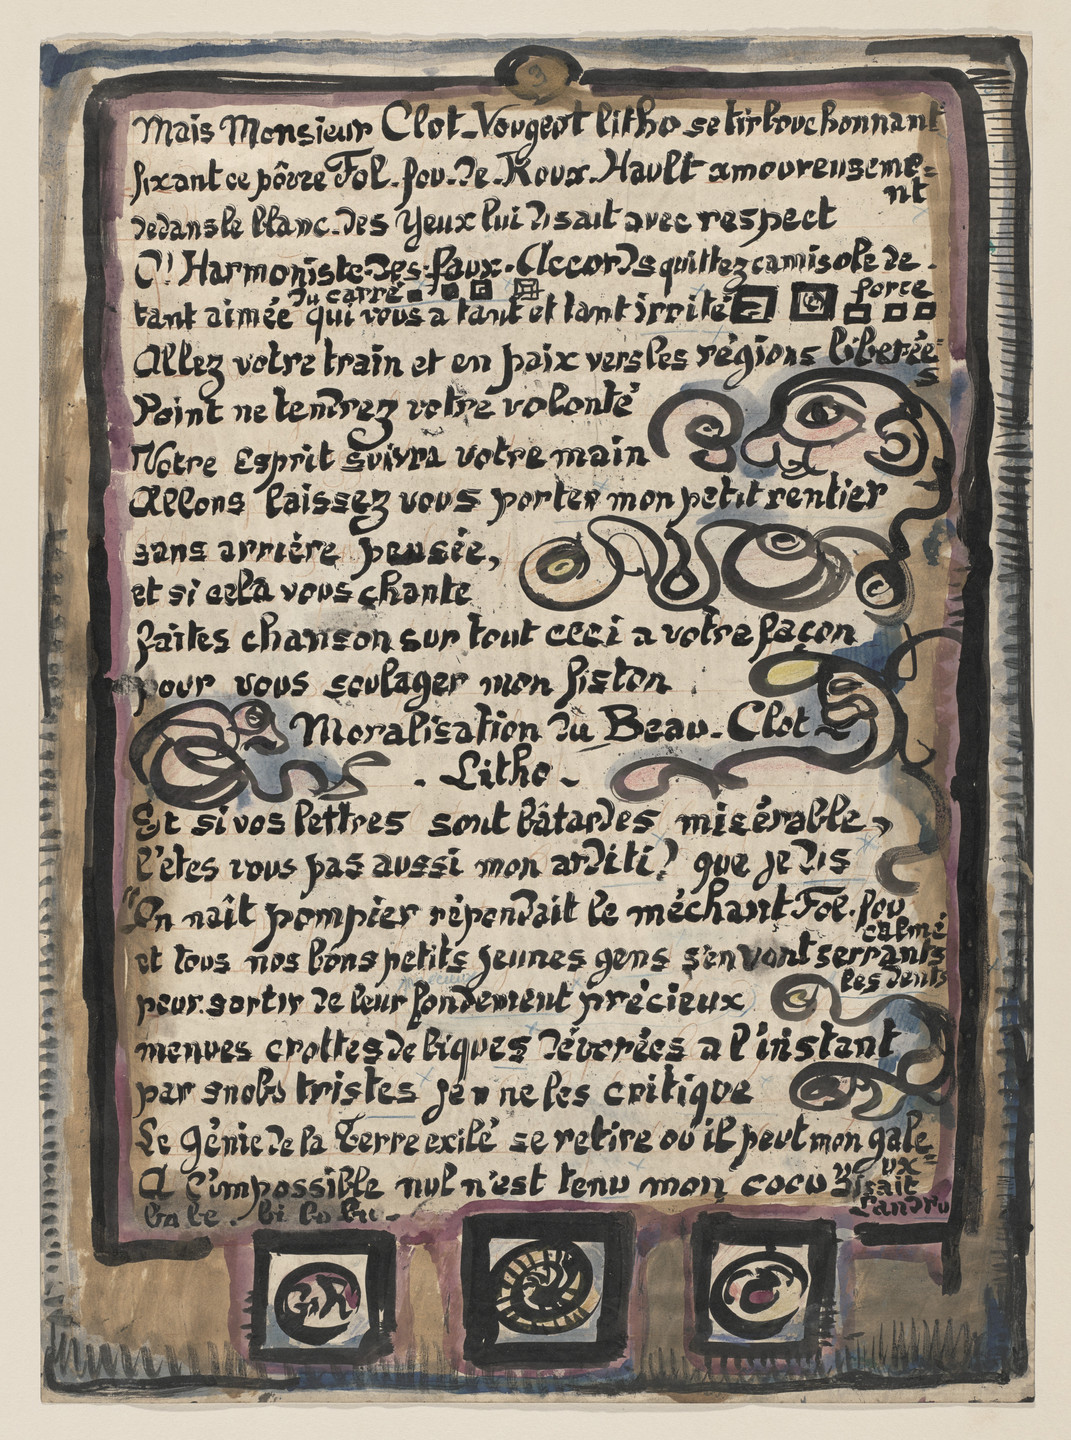 9
Mais Monsieur Clot-Vougeot litho se tirbouchonnant
fixant ce pôvre Fol-fou-de-Roux-Hault amoureuseme=
nt
dedans le blanc-des yeux lui disait avec respect
O! Harmoniste-des-faux-Accords quittez camisole de
force
du carré
tant aimée qui vous a tant et tant irrité
Allez votre train et en paix vers les régions liberée
s
Point ne tendrez votre volonté
Notre Esprit suivra votre main
Allons laissez vous porter mon petit rentier
sans arrière pensée,
et si cela vous chante
faites chanson sur tout ceci a votre façon
pour vous soulager mon fiston
Moralisation du Beau-Clot
- Litho -
Et si vos lettres sont bâtardes misérable,
l'êtes vous pas aussi mon arditi? que je dis
"On naît pompier répondait le méchant Fol-fou
calmé
et tous nos bons petits jeunes gens s'en vont serrants
les dents
peur-sortir de leur fondement précieux
menues crottes de biques dévorées a l'instant
par snobs tristes je ne les critique
Le Génie de la Terre exilé se retire où il peut mon gale
ux=
A l'impossible nul n'est tenu mon cocu disait
Landru
ba be - bi bo bu -
G.R